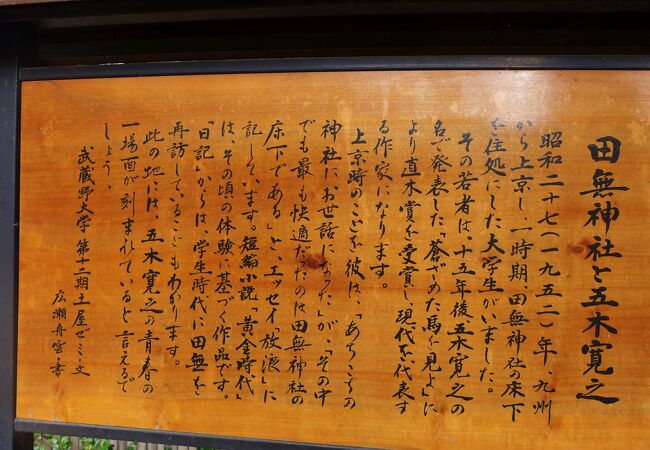 田無神社と五木寛之
昭和二十七(一九五二)年、九州
から上京し、一時期、田無神社の床下
を住処にした大学生がいました。
その若者は、十五年後五木寛之の
名で発表した「蒼ざめた馬を見よ」に
より直木賞を受賞し、現代を代表す
る作家になります。
上京時のことを彼は、「あちこちの
神社にお世話になった」が、「その中
でも最も快適だったのは田無神社の
床下である」と、エッセイ「放浪」に
記しています。短編小説「黄金時代」
は、その頃の体験に基づく作品です。
「日記」からは、学生時代に田無を
再訪していることもわかります。
此の地には、五木寛之の青春の
一場面が刻まれていると言えるで
しょう。
武蔵野大学・第十二期土屋ゼミ・文
広瀬舟雲・書